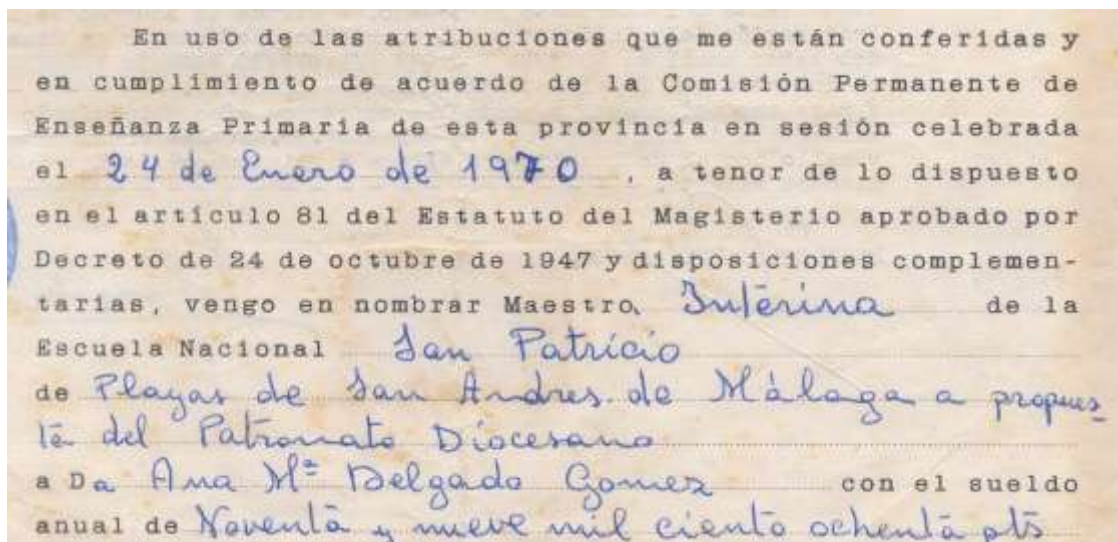 En uso de las atribuciones que me están conferidas y
en cumplimiento de acuerdo de la Comisión Permanente de
Enseñanza Primaria de esta provincia en sesión celebrada
el 24 de Enero de 1970, a tenor de lo dispuesto
en el artículo 81 del Estatuto del Magisterio aprobado por
Decreto de 24 de octubre de 1947 y disposiciones complemen-
tarias, vengo en nombrar Maestro, Interina de la
Escuela Nacional San Patricio
de Playas de San Andres de Málaga a propues
ta del Patronato Diocesano
a Da Ana Mª Delgado Gomez con el sueldo
anual de Noventa y nueve mil ciento ochenta pts